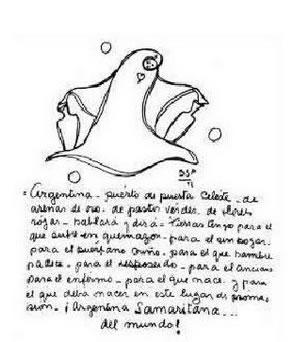 BSP
"Argentina - puerto de puerta celeste - de
arenas de oro. de pastos verdes. de flores
rojas - hablará y dirá - Tierras tengo para el
que sufre sin quemazon - para el sin hogar.
para el huérfano niño. para el que hambre
padece - para el desposeído - para el anciano
para el enfermo - para el que nace. y para
el que deba nacer en este lugar de promi
sión. ¡Argentina Samaritana...
del mundo!